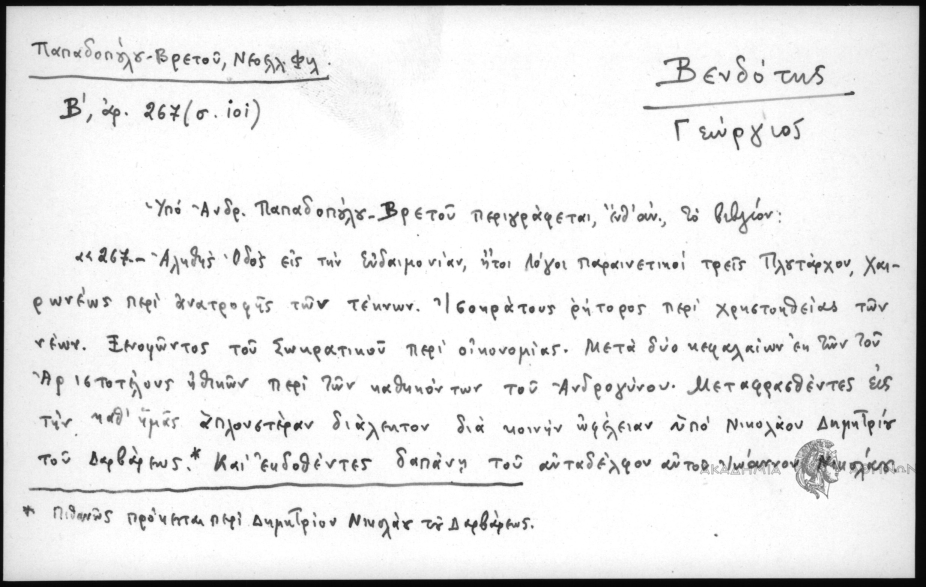 Παπαδοπούλου-Βρετοῦ, Νεοελλ. Φιλ.
Β', ἀρ. 267 (σ. 101)
Βενδότης
Γεώργιος
Ὑπό Ἀνδρ. Παπαδοπούλου-Βρετοῦ περιγράφεται, ἔνθ' ἀν., τό βιβλίον:
«267.- Ἀληθής Ὁδός εἰς τήν Εὐδαιμονίαν, ἤτοι Λόγοι παραινετικοί τρεῖς Πλυτάρχου, Χαι-
ρωνέως περί ἀνατροφῆς τῶν τέκνων. Ἰσοκράτους ῥήτορος περί χρηστοηθείας τῶν
νέων. Ξενοφῶντος τοῦ Σωκρατικοῦ περί οἰκονομίας. Μετά δύο κεφαλαίων ἐκ τῶν τοῦ
Ἀριστοτέλους ἠθικῶν περί τῶν καθηκόντων τοῦ Ἀνδρογύνου. Μεταφρασθέντες εἰς
τήν καθ' ἡμᾶς ἁπλουστέραν διάλεκτον διά κοινήν ὠφέλειαν ὑπό Νικολάου Δημητρίου
τοῦ Δαρβάρεως.* Καί ἐκδοθέντες δαπάνῃ τοῦ αὐταδέλφου αὐτοῦ Ἰωάννου Νικολάου.
* Πιθανῶς πρόκειται περί Δημητρίου Νικολάου τοῦ Δαρβάρεως.
ΑΚΑΔΗΜΙΑ ΑΘΗΝΩΝ